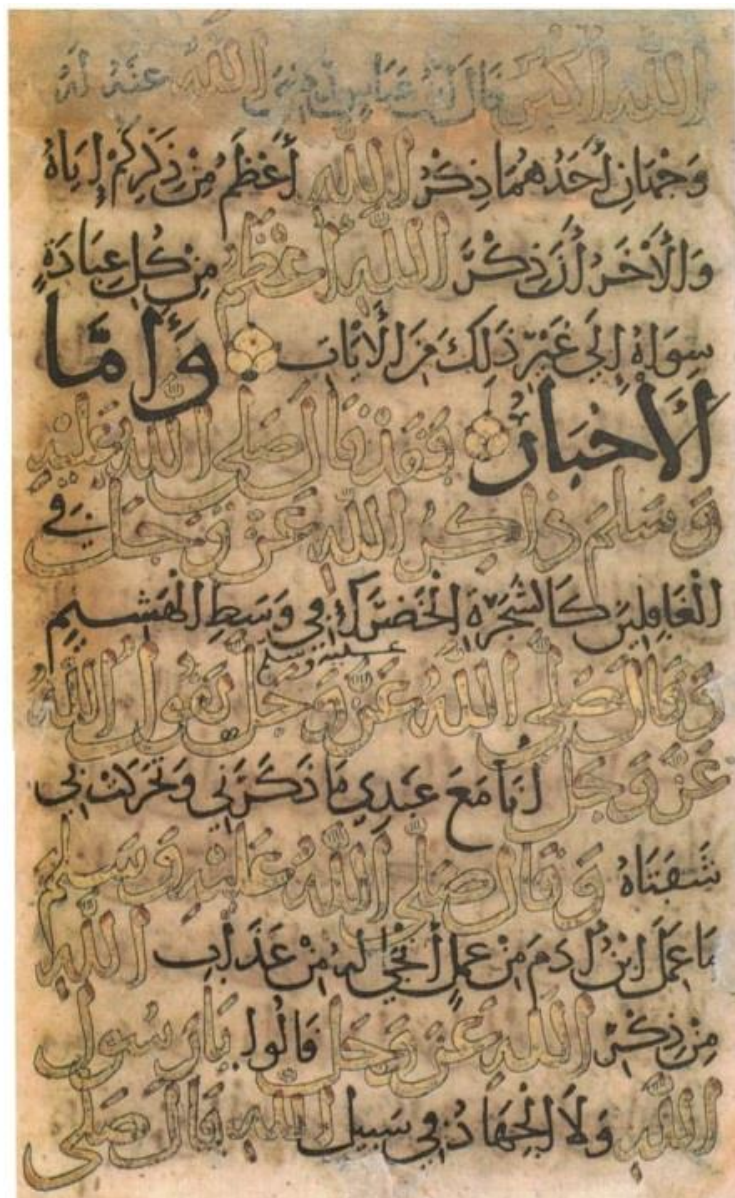 اللهِ أَكْبَرُ قَالَ ابْنُ عَبَّاسٍ رَضِيَ اللهُ عَنْهُ لَهُ
وَجْهَانِ أَحَدُهُمَا ذِكْرُ اللهِ أَعْظَمُ مِنْ ذِكْرِكُمْ إِيَاهُ
وَالْأَخَرُ أَنَّ ذِكْرَ اللهِ أَعْظَمُ مِنْ كُلِ عِبَادَةٍ
سِوَاهُ إِلَي غَيْرِ ذَلَكَ مِنَ الْأَيَاتِ وَأَمَّا
الْأَخْبَارُ فَقَدْ قَالَ صَلَي اللهُ عَلَيْهِ
وَسَلَمَ ذَاكِرُ اللهِ عَزَ وَجَلَ فِي
الْغَافِلِينَ كَالشَجَرَةِ الْخَضْرَاء فِي وَسَطِ الْهَشِيمِ
وَقَالَ صَلَّي اللهُ عليه وسلم عَزَ وَجَلَ يَقُولُ اللهُ
عَزَ وَجَلَ أَنَا مَعَ عَبْدِي مَا ذَكَرَنِي وَتَحَرَكَتْ بِي
شَفَتَاهُ وَقَالَ صَلَّي اللهُ عَلَيْهِ وَسَلَّمَ
مَا عَمَلَ ابْنُ أَدَمَ مِنْ عَمَلٍ أَنْجَي لَهُ مِنْ عَذَابِ اللهِ
مِنْ ذِكْرِ اللهِ عَزَ وَجَلَ قَالُوا يَا رَسُولَ
اللهِ وَلَا الْجِهَادُ فِي سَبِيلِ اللهِ قَالَ صَلَي